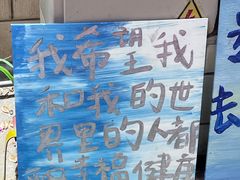 我希望我
和我的世
界里的人都
幸福健康
去